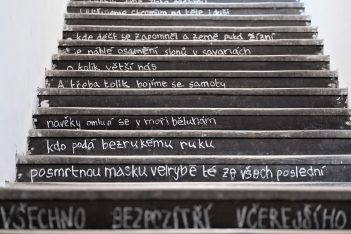 Ubližujeme chromým na těle i duši
kde déšť se zapomněl a země puká žízní
je náhle osamění slonů v savanách
o kolik větší nás
A třeba tolik bojíme se samoty
navěky omluví se v moři běluhám
kdo podá bezrukému ruku
posmrtnou masku velrybě té ze všech poslední
VŠECHNO BEZPOZÍTŘÍ VČEREJŠÍHO